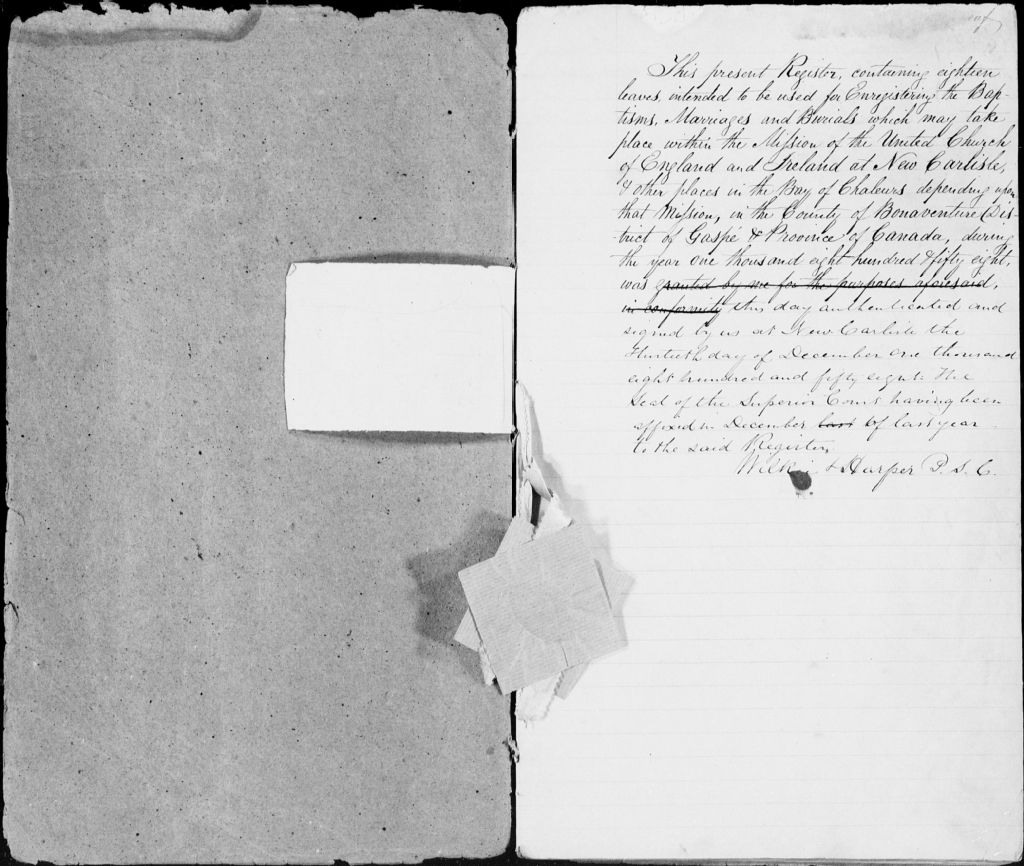 This present Register, containing eighteen
leaves, intended to be used for Enregistering the Bap-
tisms, Marriages and Burials which may take
place within the Mission of the United Church
of England and Ireland at New Carlisle,
& other places in the Bay of Chaleurs depending upon
that Mission, in the County of Bonaventure Dis-
trict of Gaspé & Province of Canada, during
the year one thousand eight hundred & fifty eight,
was granted by me for the purposes aforesaid,
in conformity this day authenticated and
signed by us at New Carlisle the
Thirtieth day of December one thousand
eight hundred and fifty eight. The
Seal of the Superior Court having been
affixed in December last of last year
to the said Register,
& Harper P. S. C.